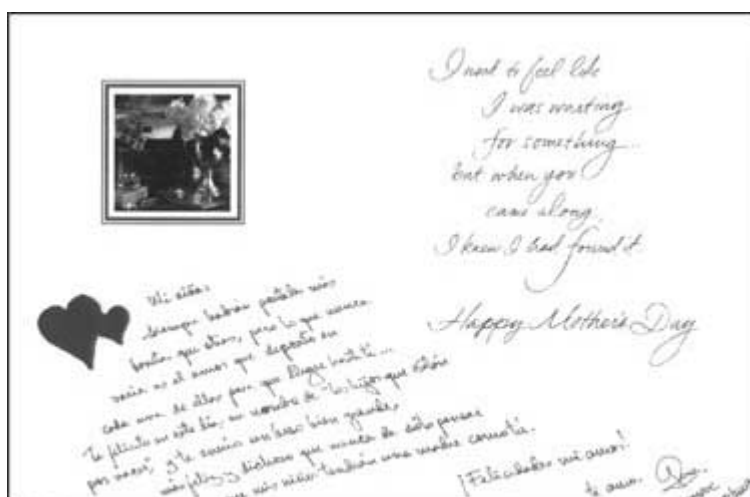 I used to feel like
I was waiting
for something...
but when you
came along,
I knew I had found it.
Happy Mother's Day
Mi niña:
Siempre habrán postales más
bonitas que otras, pero lo que nunca
varía es el amor que deposito en
cada una de ellas para que llegue hasta ti...
Te felicito en este día, en nombre de los hijos que están
por nacer, y te envío un beso bien grande,
más feliz y dichoso que nunca de sólo pensar
que mis hijos tendrán una madre como tú.
¡Felicidades mi amor!
te amo.